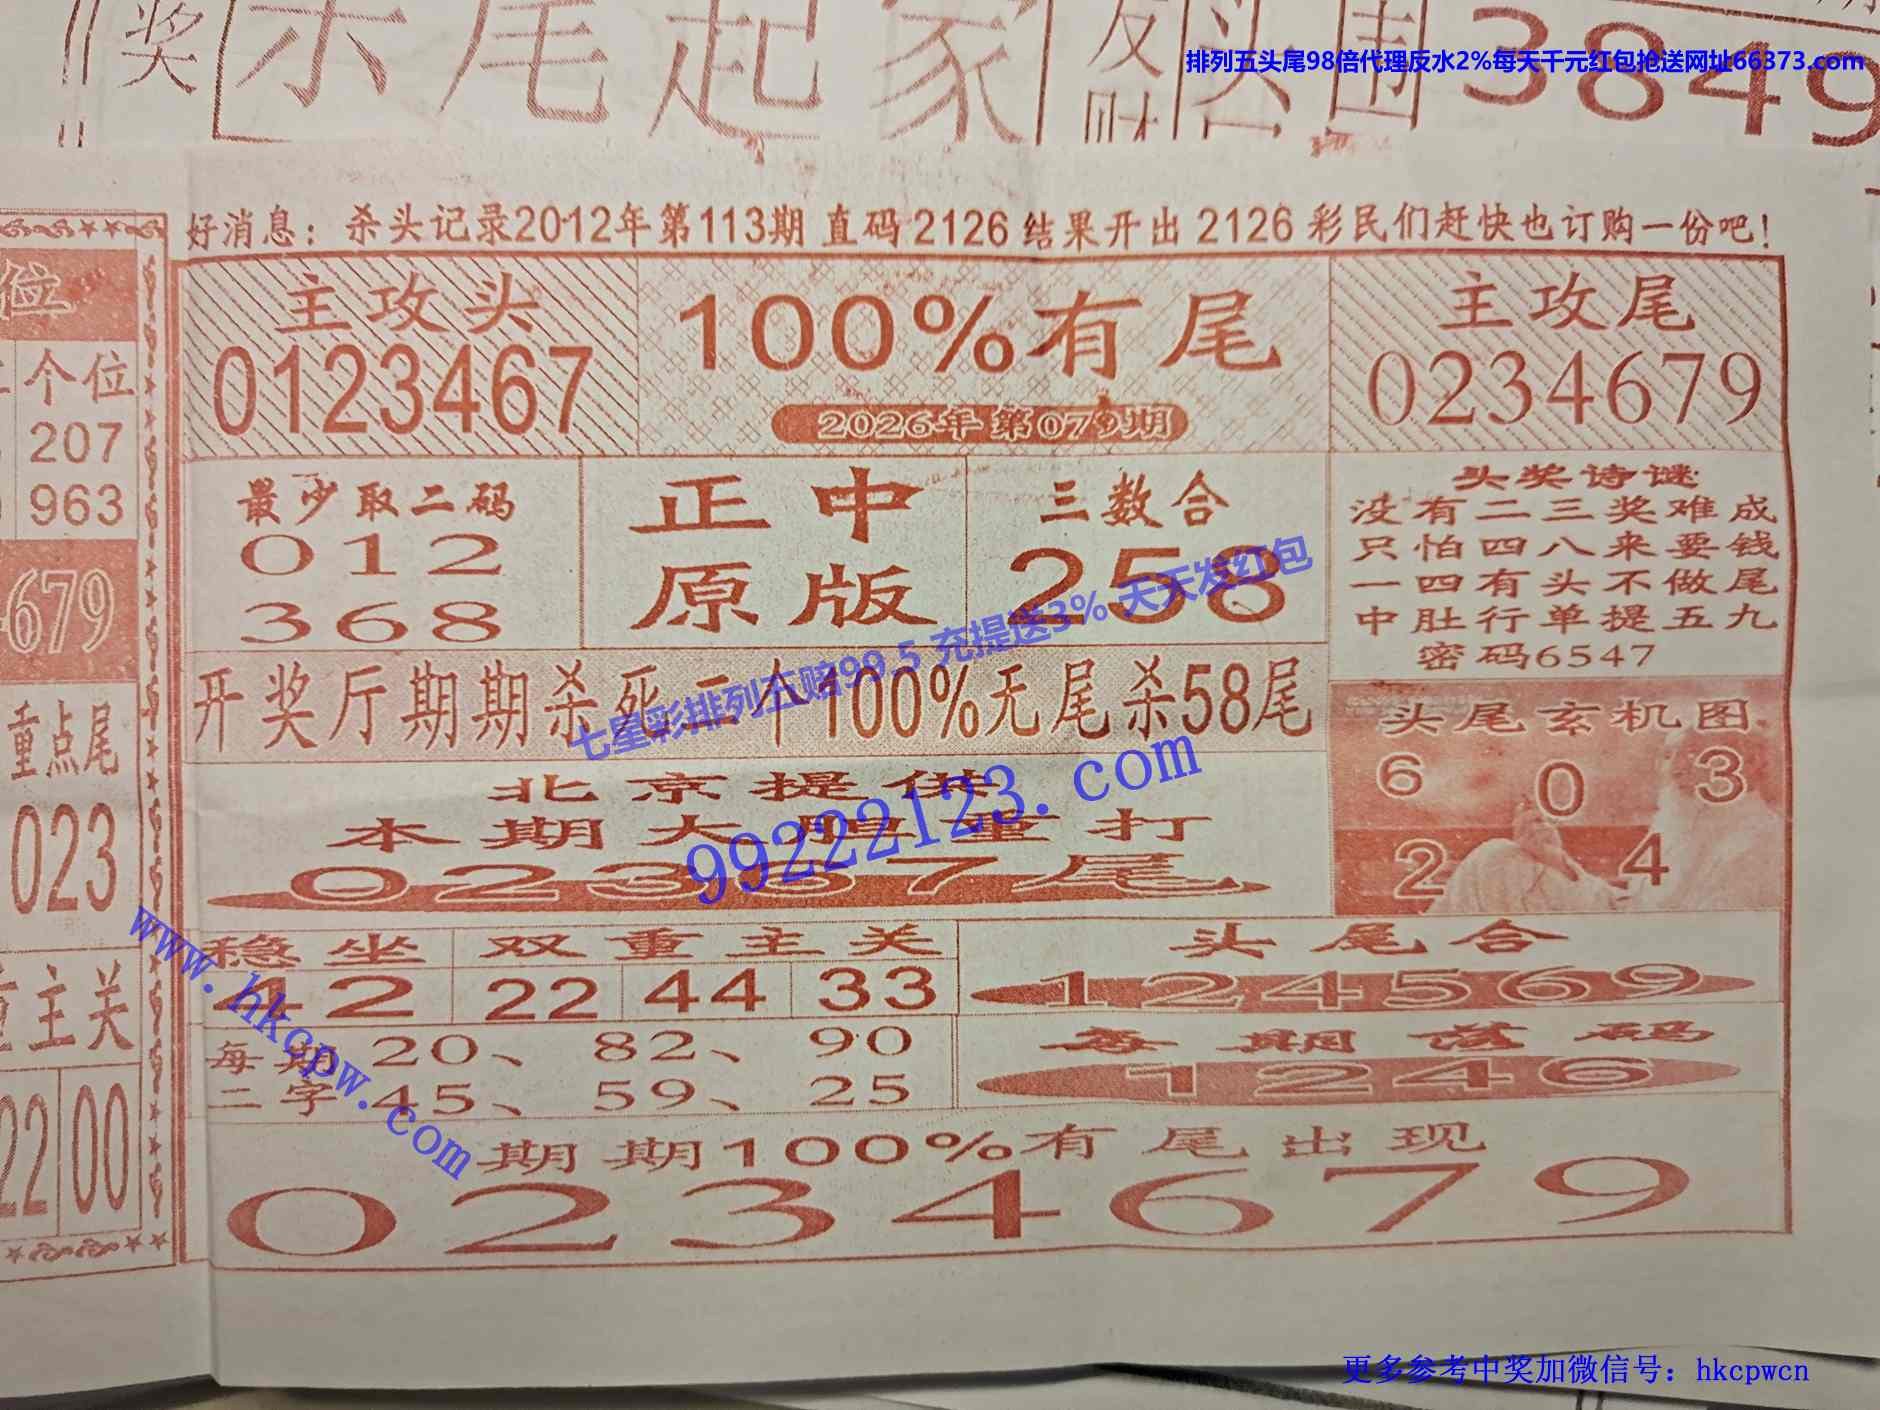 奖 杀尾起家 发财 头 围 3849
排列五头尾98倍代理反水2%每天千元红包抢送网址66373.com
好消息：杀头记录2012年第113期 直码 2126 结果开出 2126 彩民们赶快也订购一份吧！
位
个位
207
963
4679
重点尾
023
重主关
22 00
主攻头
0123467
100%有尾
2026年第079期
主攻尾
0234679
最少取二码
012
368
正中
原版
三数合
258
头奖诗谜
没有二三奖难成
只怕四八来要钱
一四有头不做尾
中肚行单提五九
密码6547
七星彩排列五赔99.5 充提送3% 天天发红包
开奖厅期期杀死二个100%无尾杀58尾
头尾玄机图
6 0 3
2 4
北京提供
本期大胆重打
02367尾
99222123.com
www.hkcpw.com
稳坐 双重主关
42 22 44 33
头尾合
124569
每期 20、 82、 90
二字 45、 59、 25
每期落码
1246
期期100%有尾出现
0234679
更多参考中奖加微信号：hkcpwcn